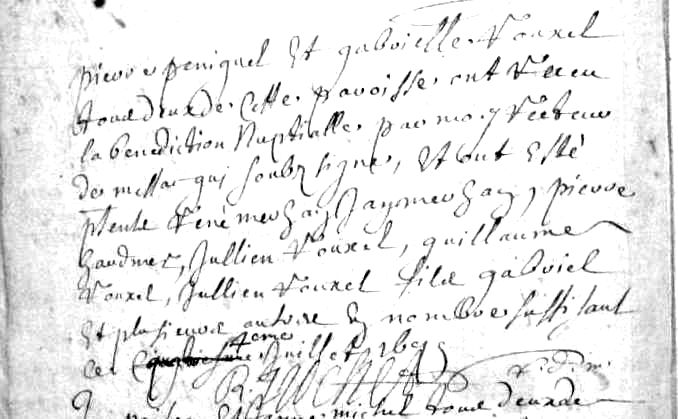 pierre peniguel Et gabrielle Vouxel
tous deux de Cette paroisse ont Receu
la benediction Nuptialle par moy Recteur
de messac qui soubz signe, Et ont Esté
pnts René merhan, Jan merhan, pierre
gaudmer, Jullien Vouxel, guillaume
Vouxel, Jullien Vouxel fils gabriel
Et plusieurs autre En nombre suffisant
ce 4eme Juillet
r. d. m.
michel tous deux de